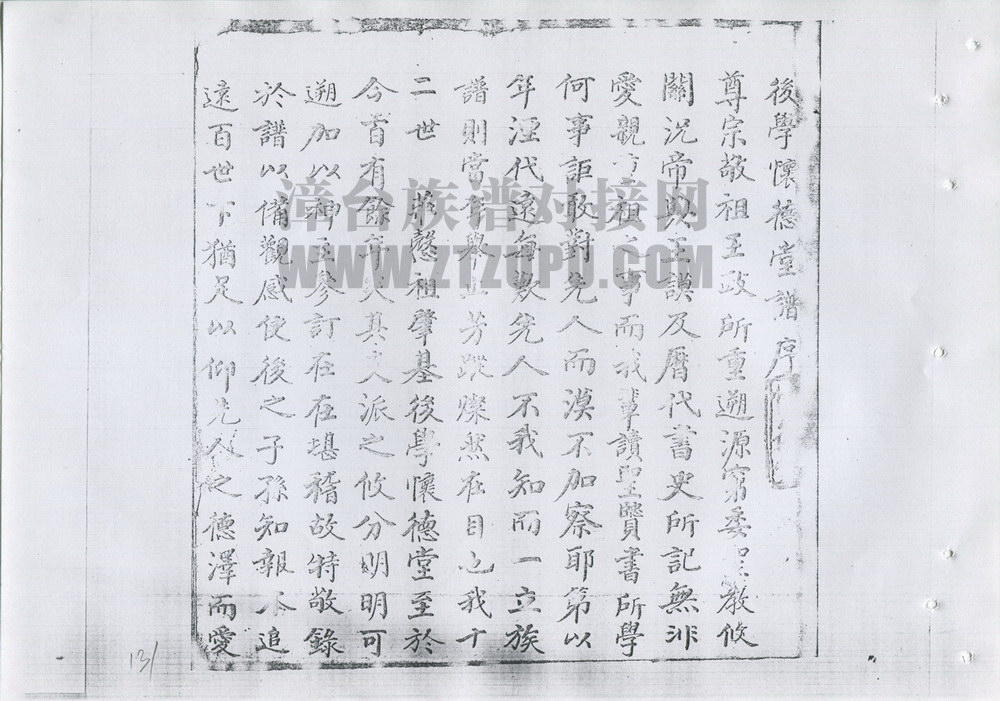 後學懷德堂譜序
尊宗敬祖王政所重遡源窮委聖教攸
關況帝典王謨及曆代書史所記無非
愛親敬祖之事而我輩讀聖賢書所學
何事詎敢對先人而漠不加察耶第以
年湮代遠每歎先人不我知而一立族
譜則當年舉止芳蹤燦然在目也我十
二世 莊慤祖肇基後學懷德堂至於
今首有餘年矣其支派之攸分明明可
遡加以神主參訂在在堪稽故特敬錄
於譜以備觀感使後之子孫知報本追
遠百世下猶足以仰先人之德澤而愛
漳台族谱对接网
WWW.ZTZUPU.COM
131